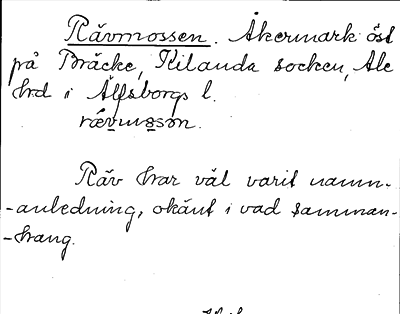 Rävmossen. Åkermark öst
på Bräcke, Kilanda socken, Ale
hrd i Älfsborgs l.
rævmosən.
Räv har väl varit namn-
-anledning, okänt i vad samman-
-hang.